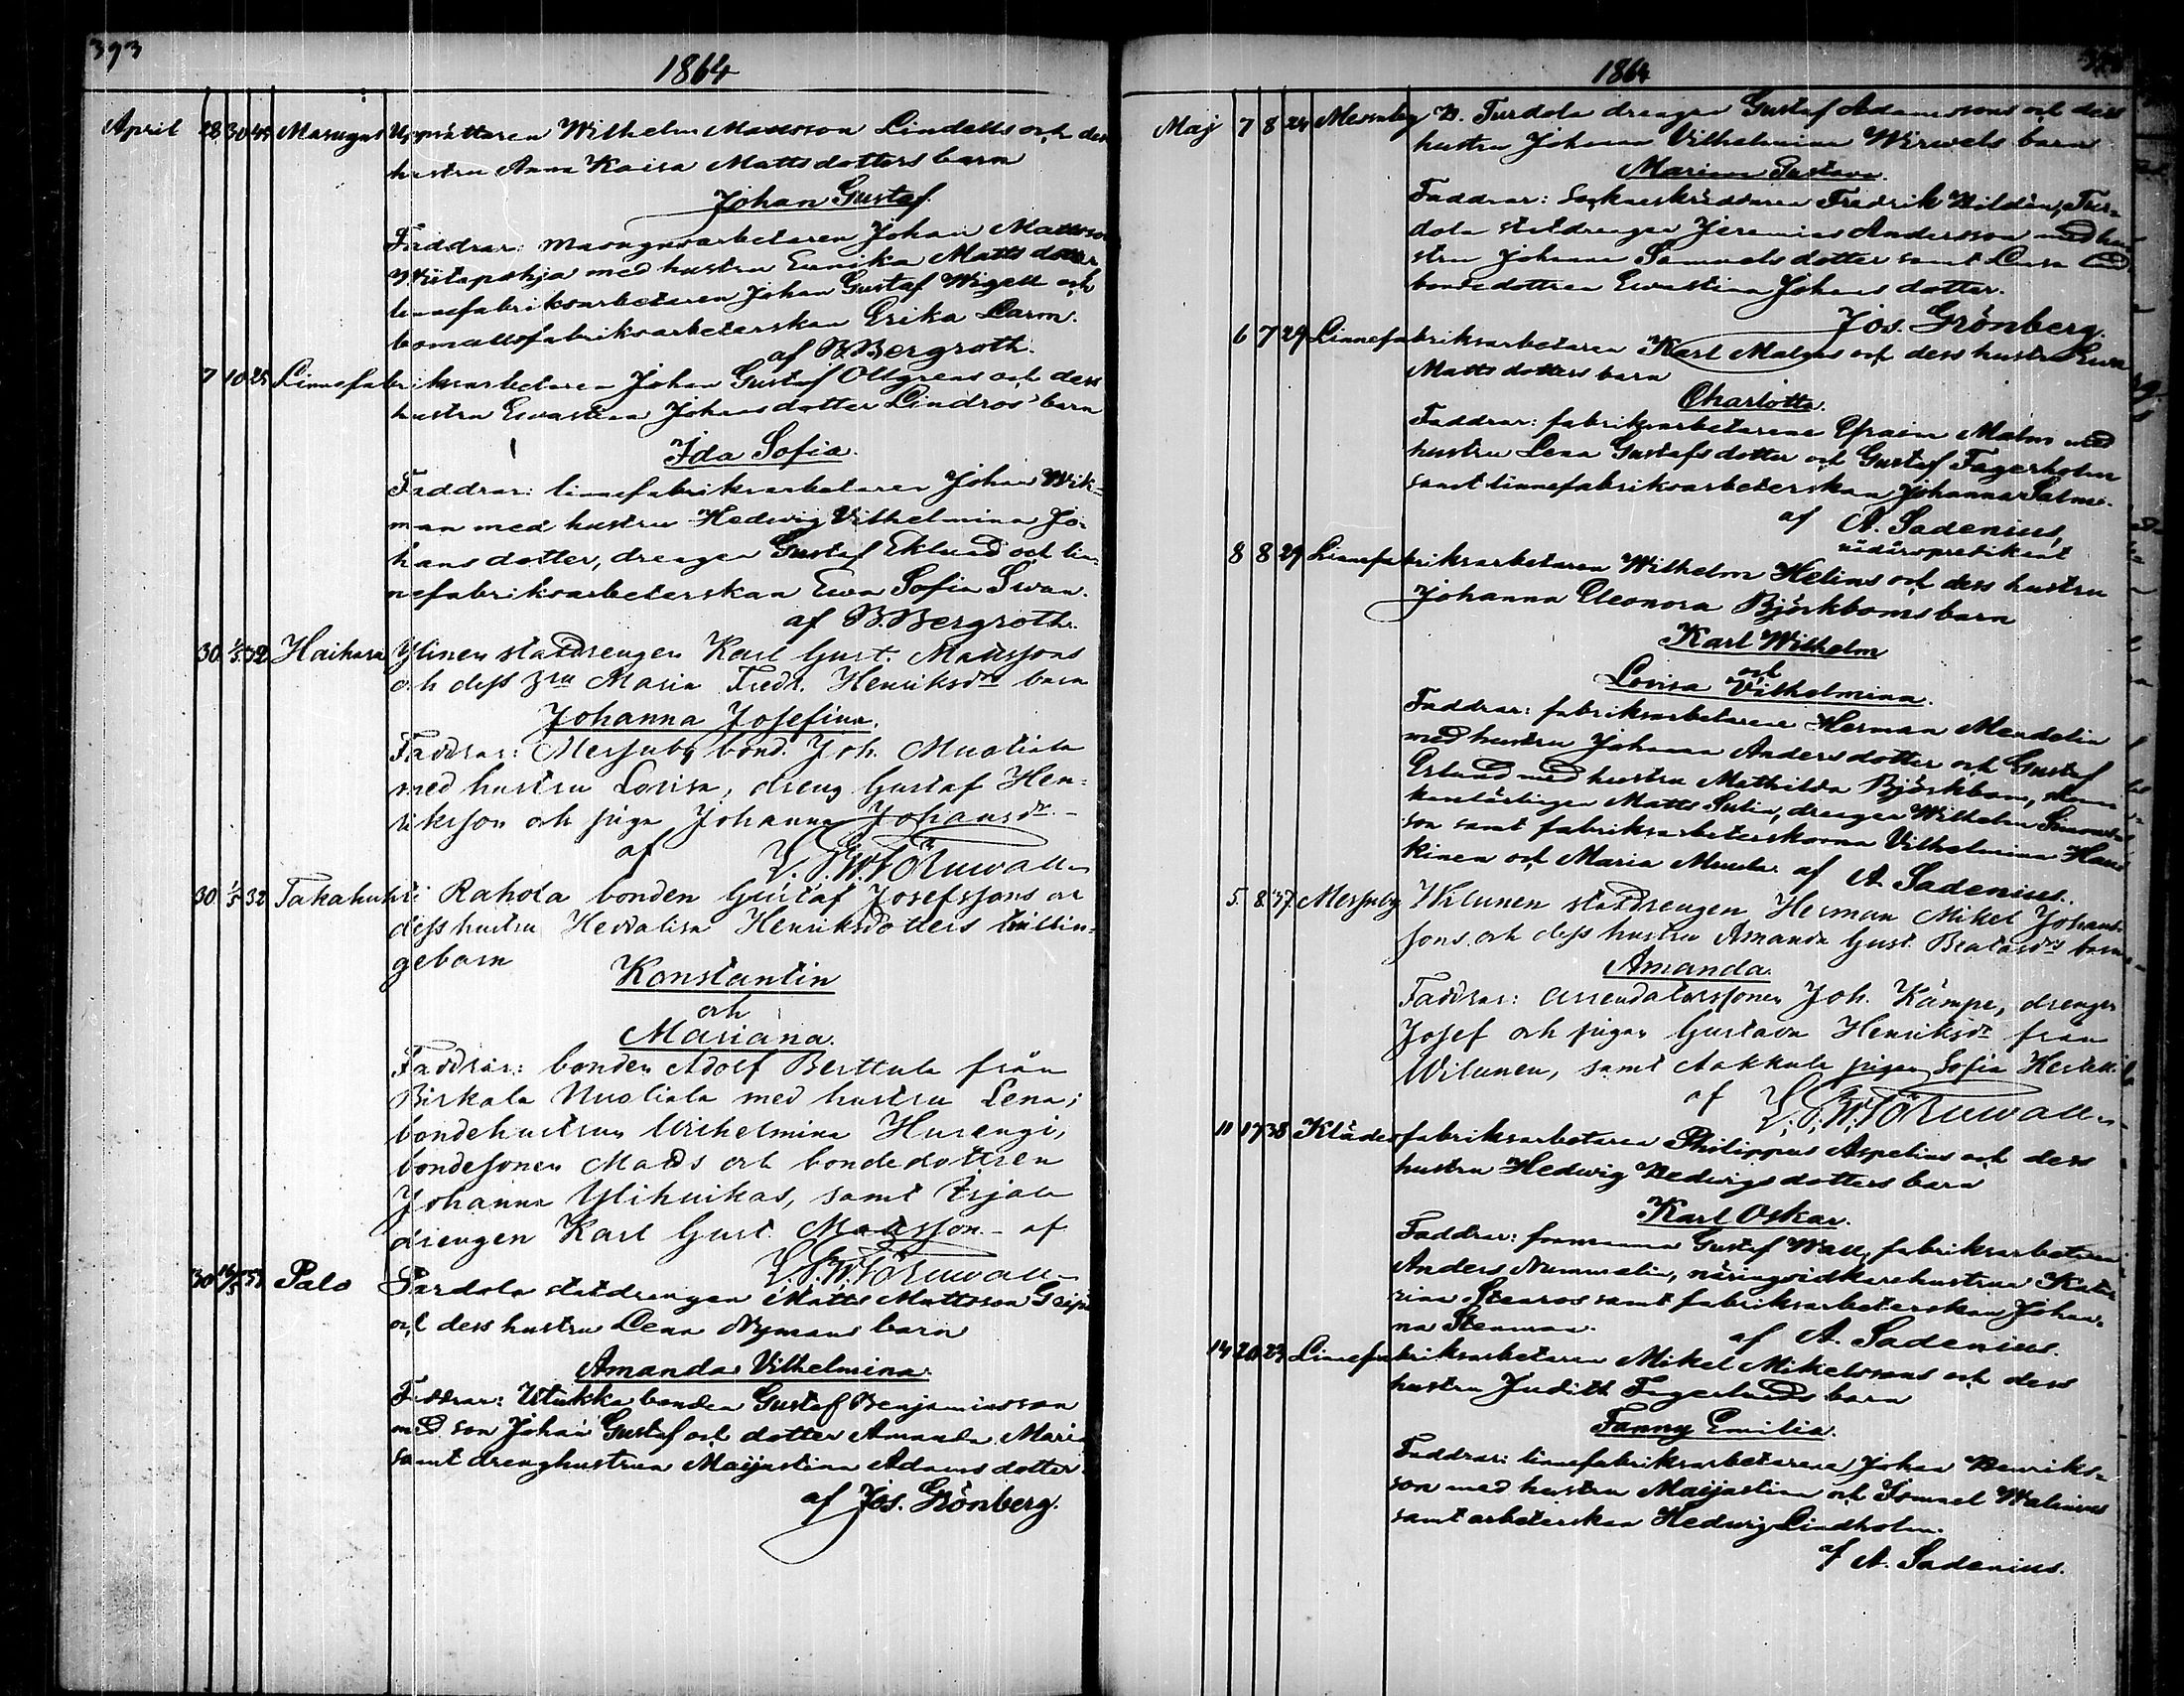 393
1864
April 28 30 45 Masugns Uppsättaren Wilhelm Mattsson Lindells och dess
hustru Anna Kaisa Mattsdotters barn
Johan Gustaf.
Faddrar: masugnsarbetaren Johan Mattsson
med hustru Eerika Mattsdotter
linnefabriksarbetaren Johan Gustaf Wigell och
bomullsfabriksarbeterskan Erika Larm.
af B. Bergroth.
7 10 25 Linnefabriksarbetaren Johan Gustaf Ollgrens och dess
hustru Evastina Johansdotter Lindros' barn
Ida Sofia.
Faddrar: linnefabriksarbetaren Johan Wik-
man med hustru Hedwig Vilhelmina Jo-
hansdotter, drengen Gustaf Eklund och lin-
nefabriksarbeterskan Ewa Sofia Swan.
af B. Bergroth.
30 1/5 32 Haihara Ylinen statdrengen Karl Gust. Mattssons
och dess hru Maria Fredr. Henriksdrs barn
Johanna Josefina.
Faddrar: Messuby bond. Joh. Muotiala
med hustru Lovisa, dreng Gustaf Hen-
riksson och piga Johanna Johansdr. -
af L. G. W. Törnwall
30 1/5 32 Takahuhti Rahola bonden Gustaf Josefssons och
dess hustru Heddalisa Henriksdotters tvillin-
gebarn
Konstantin
och
Mariana.
Faddrar: bonden Adolf Berttula från
Birkala Nuoliala med hustru Lena;
bondehustrun Wilhelmina Hurengi,
bondesonen Matts och bondedottren
Johanna Ylihuikas, samt
drengen Karl Gust. Mattsson. - af
L. G. W. Törnwall
30 16/5 Palo statdrengen Matts Mattsson
och dess hustru Lena Nymans barn
Amanda Vilhelmina.
Faddrar: Utukka bonden Gustaf Benjaminsson
med son Johan Gustaf och dotter Amanda Maria
samt drenghustrun Maijastina Adamsdotter.
af Jos. Grönberg.
1864
Maj 7 8 24 Messuby N. Turdola drengen Gustaf Adamssons och dess
hustru Johanna Vilhelmina Wirwels barn
Maria Gustava.
Faddrar: sockneskräddaren Fredrik Wildén, Tur-
dola statdrengen Jeremias Andersson med hu-
stru Johanna Samuelsdotter samt
bondedottren Evastina Johansdotter.
Jos. Grönberg.
6 7 29 Linnefabriksarbetaren Karl Malms och dess hustru Ewa
Mattsdotters barn
Charlotta.
Faddrar: fabriksarbetarene Efraim Malm med
hustru Lena Gustafsdotter och Gustaf Fagerholm
samt linnefabriksarbeterskan Johanna Salme.
af A. Sadenius,
nödårspredikant
8 8 29 Linnefabriksarbetaren Wilhelm Helins och dess hustru
Johanna Eleonora Björkboms barn
Karl Wilhelm
och
Lovisa Vilhelmina.
Faddrar: fabriksarbetarene Herman Mendelin
med hustru Johanna Andersdotter och Gustaf
Erlund med hustru Mathilda Björkbom,
Matts Sulin, drengen Wilhelm Simons-
son samt fabriksarbeterskorna Vilhelmina
och Maria af A. Sadenius.
5. 8. 37 Messuby Wilunen statdrengen Herman Mikel Johans-
sons och dess hustru Amanda Gust. barn
Amanda.
Faddrar: arrendatorssonen Joh. Kämpe, drengen
Josef och pigan Gustava Henriksdr från
Wilunen, samt Aakkula pigan Sofia
af L. G. W. Törnwall
11 17 38 Klädesfabriksarbetaren Philippus Aspelins och dess
hustru Hedwig Hedwigsdotters barn
Karl Oskar.
Faddrar: formannen Gustaf Wall, fabriksarbetaren
Anders Nummelin, näringsidkarehustrun Kata-
rina Stenros samt fabriksarbeterskan Johan-
na Stenman.
af A. Sadenius.
14 20 23 Linnefabriksarbetaren Mikel Mikelssons och dess
hustru Judith Fagerlunds barn
Fanny Emilia.
Faddrar: linnefabriksarbetarene Johan Henriks-
son med hustru Maijastina och Ismael Walenius
samt arbeterskan Hedwig Lindholm.
af A. Sadenius.